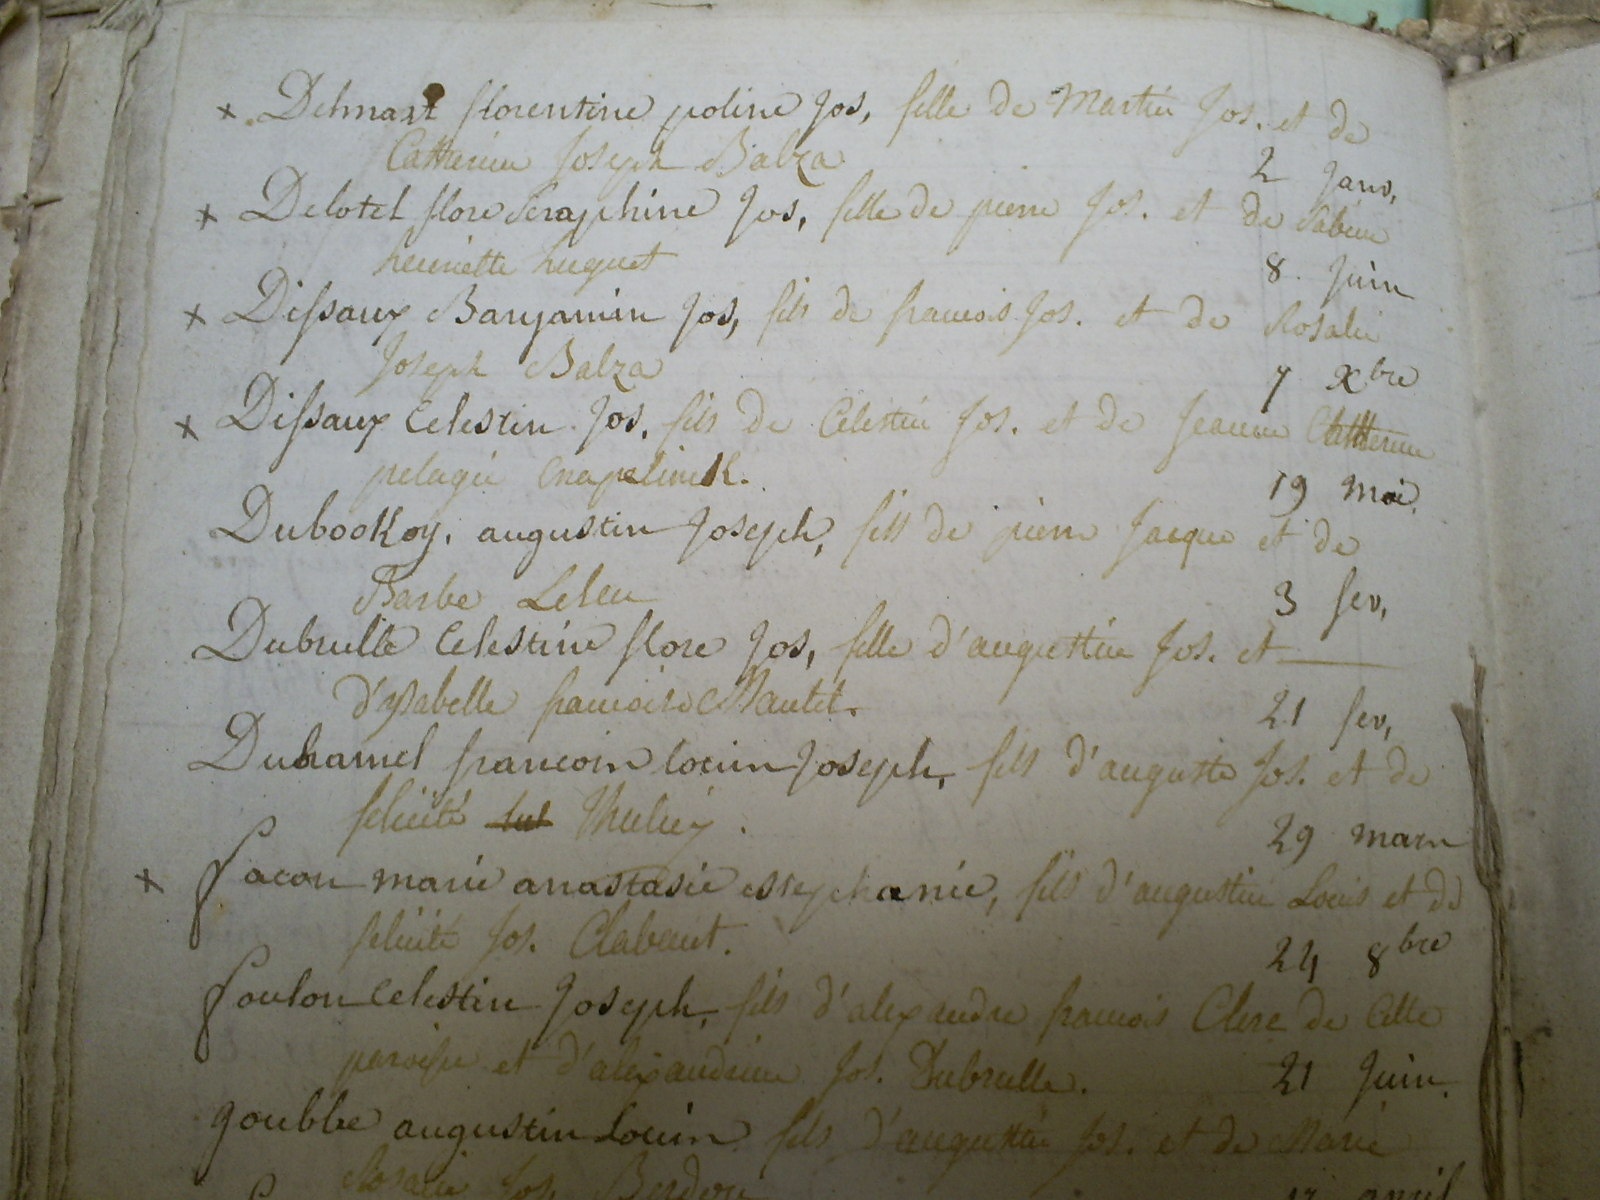 x Delmart florentine poline Jos, fille de Martin Jos. et de
Catterine Joseph Balza 2 Janv,
x Delotel flore Seraphine Jos, fille de pierre Jos. et de Sabine
henriette huguet 8 Juin
x Dissaux Banjamin Jos, fils de francois Jos. et de Rosalie
Joseph Balza 7 Xbre
x Dissaux Celestin Jos, fils de Celestin Jos. et de Jeanne Catterine
pelagie Cnapelinck. 19 Mai
DubooKoy, augustin Joseph, fils de pierre Jacque et de
Barbe Leleu 3 fev,
Dubrulle Celestine flore Jos, fille d'augustin Jos. et
d'ysabelle francoise Mantel. 21 fev,
Duhamel francois Louis Joseph, fils d'auguste Jos. et de
felicité Thuliez. 29 mars
x facon marie anastasie estephanie, fils d'augustin Louis et de
felicité Jos. Clabaut. 24 8bre
foulon Celestin Joseph, fils d'alexandre francois Clerc de Cette
paroisse et d'alexandrine Jos. Dubrulle. 21 Juin.
goubbe augustin Louis fils d'augustin Jos. et de Marie
Rosalie Jos. 17 avril